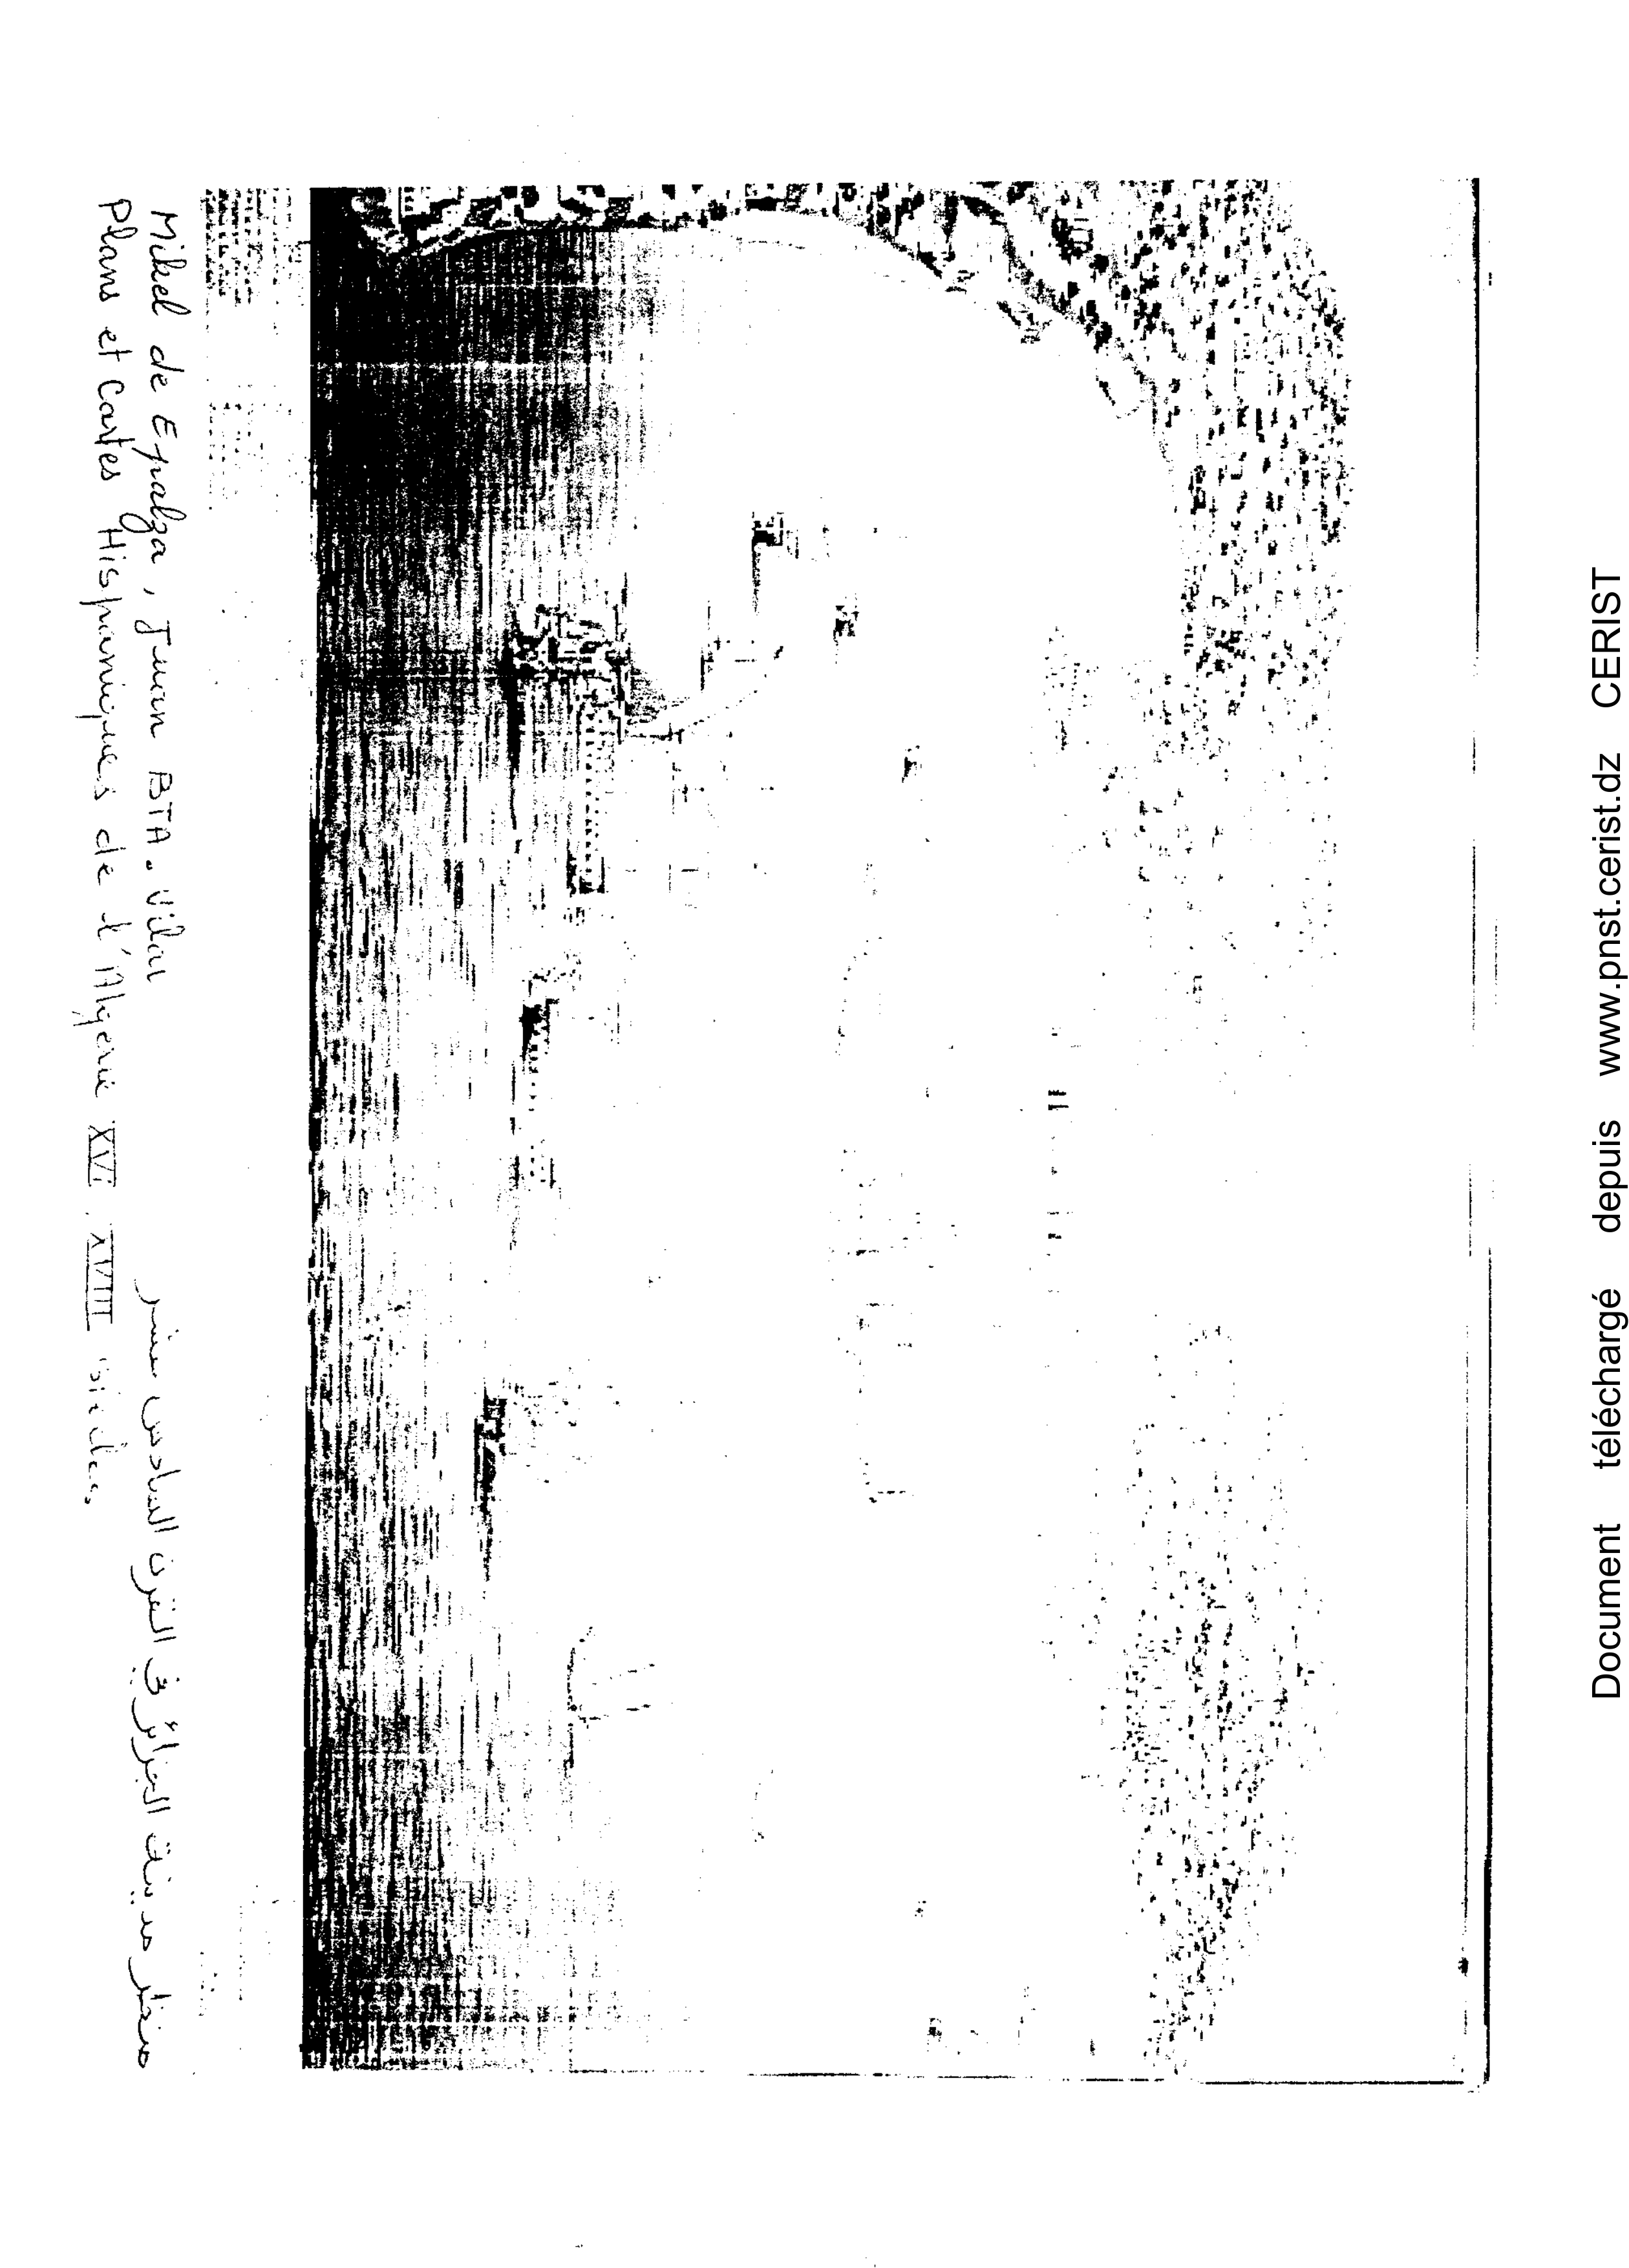 منظر مدينة الجزائر في القرن السادس عشر
Mikel de Epalza, Juan BTA. Vilar
Plans et Cartes Hispaniques de l'Algerie XVI XVIII siècles
Document téléchargé depuis www.pnst.cerist.dz CERIST